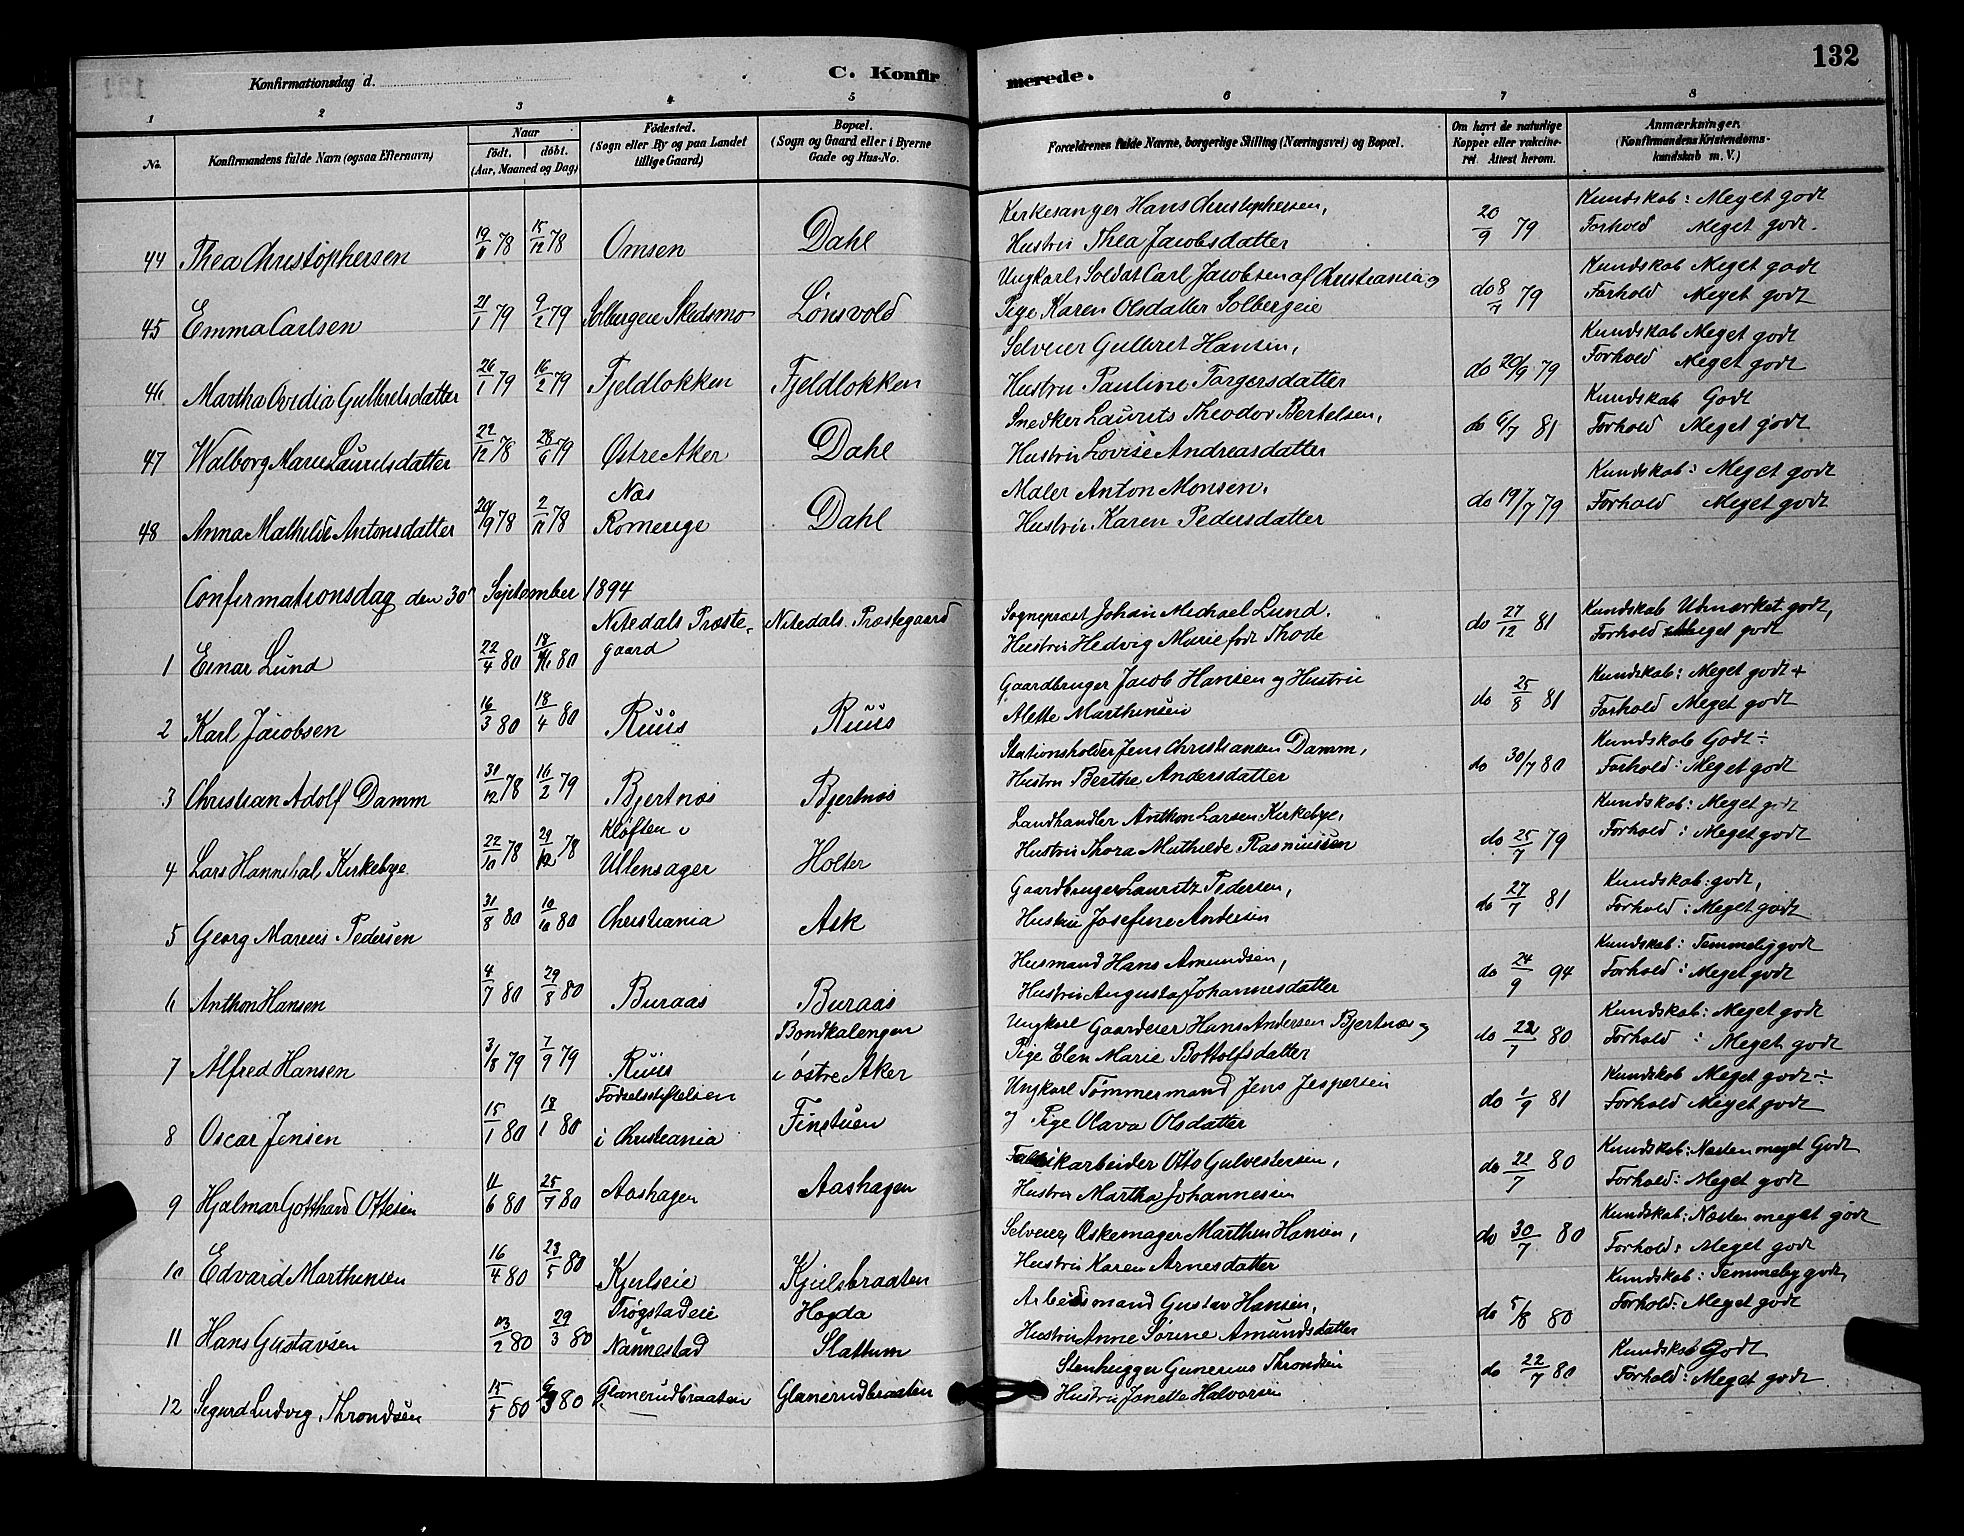 132
Konfirmationsdag d.
C. Konfirmerede.
1 2 3 4 5 6 7 8
No. Konfirmandens fulde Navn (ogsaa Efternavn) Naar født, døbt. (Aar, Maaned og Dag) Fødested. (Sogn eller By og paa Landet tillige Gaard) Bopæl. (Sogn og Gaard eller i Byerne Gade og Hus-No. Forældrenes fulde Navne, borgerlige Stilling (Næringsvei) og Bopæl. Om havt de naturlige Kopper eller vakcineret. Attest herom. Anmærkninger. (Konfirmandens Kristendomskundskab m. V.)
44 Thea Christophersen 19/6 78 15/12 78 Omsen Dahl Kirkesanger Hans Christophersen, Hustru Thea Jacobsdatter 20/9 79 Kundskab: Meget godt Forhold Meget godt.
45 Emma Carlsen 21/1 79 9/2 79 Solbergeie Skedsmo Lønsvold Ungkarl, Soldat Carl Jacobsen af Christiania og Pige Karen Olsdatter Solbergeie do 79 Kundskab Meget godt Forhold Meget godt
46 Martha Ovidia Gulbrelsdatter 26/1 79 16/2 79 Fjeldlokken Fjeldlokken Selveier Gulbret Hansen, Hustru Pauline Torgersdatter do 20/9 79 Kundskab Meget godt Forhold Meget godt
47 Walborg Marie Lauretsdatter 22/12 78 79 Østre Aker Dahl Snedker Laurits Theodor Bertelsen, Hustru Lovise Andreasdatter do 6/7 81 Kundskab Godt Forhold Meget godt
48 Anna Mathilde Antonsdatter 20/9 78 2/11 78 Næs Romerige Dahl Maler Anton Monsen, Hustru Karen Pedersdatter do 19/7 79 Kundskab: Meget godt Forhold Meget godt
Confirmationsdag den 30 September 1894
1 Einar Lund 22/4 80 80 Nitedals Præstegaard Nitedals Præstegaard Sogneprest Johan Michael Lund. Hustru Hedvig Marie født Thode do 27/12 81 Kundskab Udmærket godt, Forhold Meget godt
2 Karl Jacobsen 16/3 80 18/4 80 Ruus Ruus Gaardbruger Jacob Hansen og Hustru Alette Marthinsen do 25/8 81 Kundskab: Meget godt + Forhold Meget godt
3 Christian Adolf Damm 31/12 78 16/2 79 Bjertnæs Bjertnæs Stationsholder Jens Christiansen Damm, Hustru Berthe Andersdatter do 30/7 80 Kundskab Godt ÷ Forhold: Meget godt
4 Lars Hannibal Kirkebye 22/10 78 29/12 78 Kløften i Ullensager Holter Landhandler Anthon Larsen Kirkebye, Hustru Thora Mathilde Rasmussen do 25/7 79 Kundskab: Meget godt Forhold: Meget godt
5 Georg Marius Pedersen 31/8 80 10/10 80 Christiania Ask Gaardbruger Lauritz Pedersen, Hustru Josefine Andersen do 27/7 81 Kundskab: godt, Forhold: Meget godt
6 Anthon Hansen 4/7 80 29/8 80 Buraas Buraas Husmand Hans Amundsen, Hustru Augusta Johannesdatter do 24/9 94 Kundskab: Temmelig godt Forhold: Meget godt
7 Alfred Hansen 3/8 79 7/9 79 Ruus Bondkalengen i østre Aker Ungkarl Gaardeier Hans Andersen Bjertnæs og Pige Elen Marie Bottolfsdatter do 22/7 80 Kundskab: Meget godt Forhold: Meget godt
8 Oscar Jensen 15/1 80 18/1 80 Fødselsstiftelsen i Christiania Finstuen Ungkarl Tømmermand Jens Jespersen og Pige Olava Olsdatter do 1/9 81 Kundskab Meget godt ÷ Forhold Meget godt
9 Hjalmar Gotthard Ottesen 11/6 80 25/7 80 Aashagen Aashagen Fabrikarbeider Otto Gulvestersen, Hustru Martha Johannesen do 22/7 80 Kundskab: Næsten meget Godt Forhold: Meget godt
10 Edvard Marthinsen 16/4 80 23/5 80 Kjulseie Kjulsbraaten Selveier, Øskemager Marthin Hansen, Hustru Karen Arnesdatter do 30/7 80 Kundskab: Næsten meget godt Forhold: Meget godt
11 Hans Gustavsen 13/2 80 29/3 80 Trøgstadeie Nannestad Hagda Slattum Arbeidsmand Gustav Hansen, Hustru Anne Sørine Amundsdatter do 5/8 80 Kundskab: Temmelig godt, Forhold: Meget godt
12 Sigurd Ludvig Throndsen 15/5 80 80 Glanerudbraaten Glanerudbraaten Stenhugger Gunerius Throndsen Hustru Janette Halvorsen do 22/7 80 Kundskab Godt Forhold: Meget godt